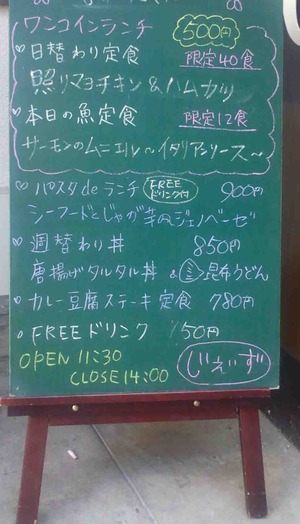 ワンコインランチ 500円
♡日替わり定食 限定40食
照リマヨチキン&ハムカツ
♡本日の魚定食 限定12食
サーモンのムニエル〜イタリアンソース〜
♡パスタdeランチ FREEドリンク付 900円
シーフードとじゃが芋のジェノベーゼ
♡週替わり丼 850円
唐揚げタルタル丼 & 昆布うどん
♡カレー豆腐ステーキ定食 780円
FREEドリンク 150円
OPEN 11:30
CLOSE 14:00
じぇいず